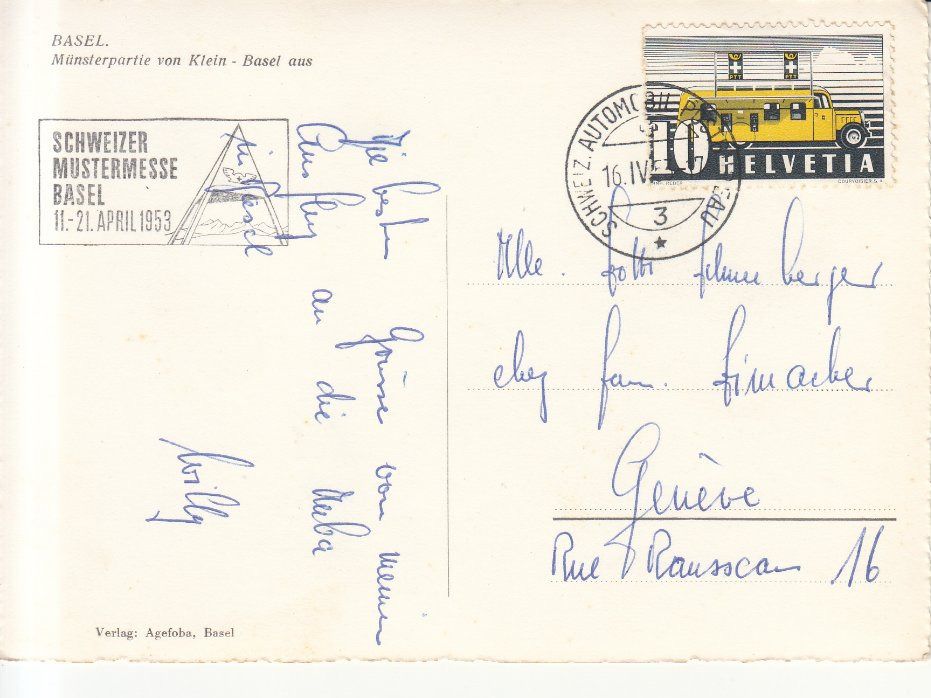 BASEL.
Münsterpartie von Klein - Basel aus
SCHWEIZER
MUSTERMESSE
BASEL
11.-21. APRIL 1953
PTT PTT
10 HELVETIA
COURVOISIER S.A.
SCHWEIZ. AUTOMOBIL
16. IV
3
Die besten Grüsse von meinem
Ausflug an die Muba
in
Willy
Mlle.
chez fam.
Genève
Rue 16
Verlag: Agefoba, Basel